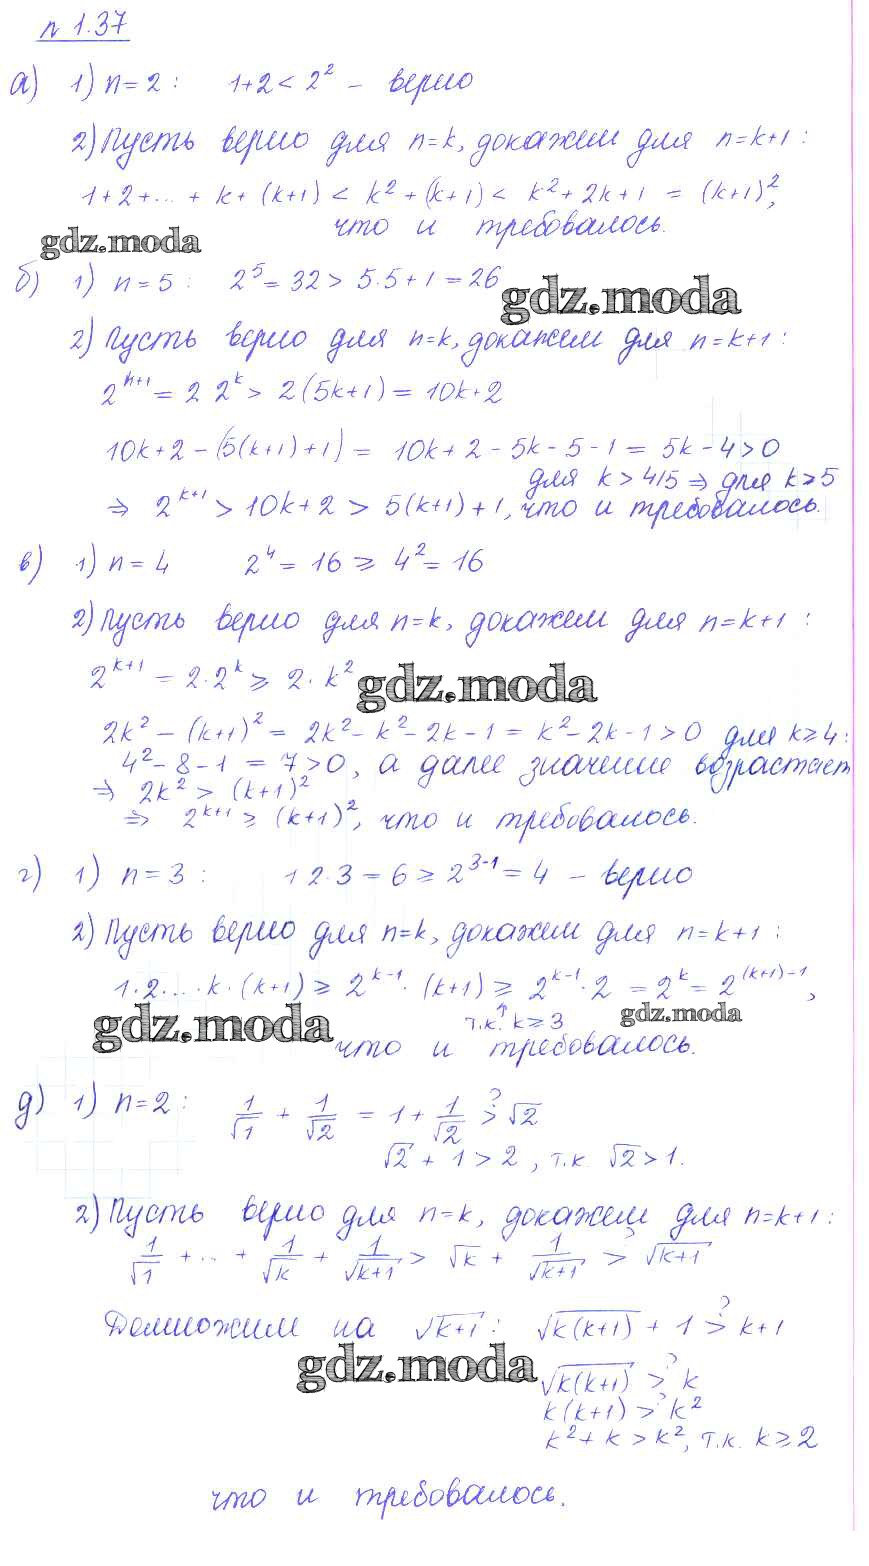 n 1.37
а) 1) n=2: 1+2 < 2² – верно
2) Пусть верно для n=k, докажем для n=k+1:
1+2+...+k+(k+1) < k²+(k+1) < k²+2k+1 = (k+1)²,
что и требовалось.
gdz.moda
б) 1) n=5: 2⁵=32 > 5·5+1=26
gdz.moda
2) Пусть верно для n=k, докажем для n=k+1:
2ⁿ⁺¹ = 2 2ᵏ > 2(5k+1) = 10k+2
10k+2-(5(k+1)+1) = 10k+2-5k-5-1 = 5k-4>0
для k>4/5 ⇒ для k≥5
⇒ 2ᵏ⁺¹ > 10k+2 > 5(k+1)+1, что и требовалось.
в) 1) n=4 2⁴=16 ≥ 4²=16
2) Пусть верно для n=k, докажем для n=k+1:
2ᵏ⁺¹ = 2·2ᵏ ≥ 2·k²
gdz.moda
2k²-(k+1)² = 2k²-k²-2k-1 = k²-2k-1>0 для k≥4:
4²-8-1 = 7>0, а далее значение возрастает
⇒ 2k² > (k+1)²
⇒ 2ᵏ⁺¹ ≥ (k+1)², что и требовалось.
г) 1) n=3: 1 2·3=6 ≥ 2³⁻¹=4 – верно
2) Пусть верно для n=k, докажем для n=k+1:
1·2·...·k·(k+1) ≥ 2ᵏ⁻¹·(k+1) ≥ 2ᵏ⁻¹·2 = 2ᵏ = 2⁽ᵏ⁺¹⁾⁻¹,
gdz.moda
↑ т.к. k≥3
gdz.moda
что и требовалось.
д) 1) n=2: 1/√1 + 1/√2 = 1 + 1/√2 >? √2
√2 + 1 > 2, т.к. √2>1.
2) Пусть верно для n=k, докажем для n=k+1:
1/√1 + ... + 1/√k + 1/√(k+1) > √k + 1/√(k+1) >? √(k+1)
Домножим на √(k+1): √(k(k+1)) + 1 >? k+1
gdz.moda
√(k(k+1)) >? k
k(k+1) >? k²
k²+k > k², т.к. k≥2
что и требовалось.